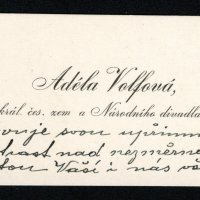 Adéla Volfová,
král. čes. zem a Národního divadla
uje svou upřímn
trast nad nezměrně
Vaší i nás vš